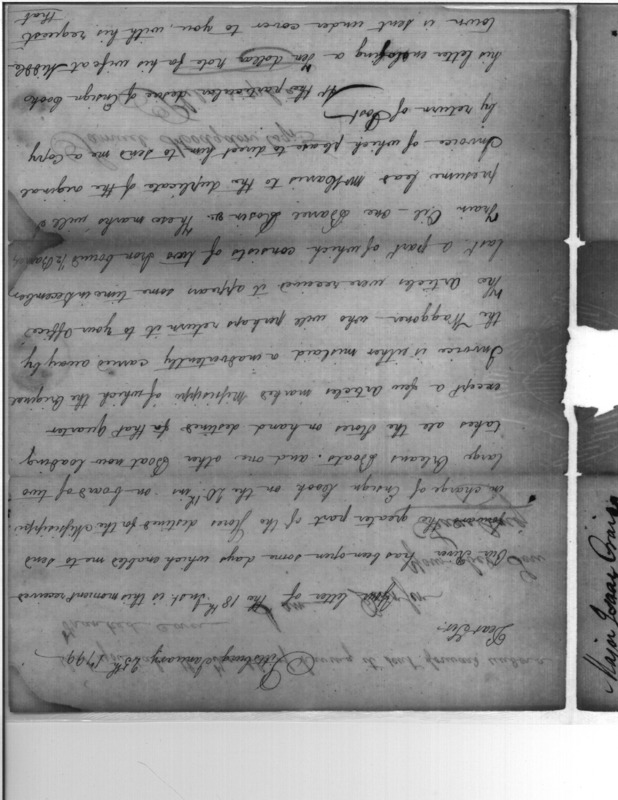 Pittsburgh January 25th 1799
Dear Sir.
Your letter of the 18th Inst. is this moment received
Our River has been open some days which enabled me to send
forward the greater part of the Stores destined for the Mississippi
in charge of Ensign Cook on the 20th Inst. on board of two
large Orleans Boats. and one other Boat now loading
takes all the Stores on hand destined for that quarter
except a few Articles marked Mississippi of which the Original
Invoice is either mislaid or inadvertently carried away by
the Waggoner who will perhaps return it to your Office,
The Articles were received it appears some time in December
last a part of which consists of two Iron bound Barrels
Train Oil – one Barrel Rosin &c. These marks will I
presume lead Mr Harris to the duplicate of the original
Invoice of which please to direct him to send me a Copy
by return of Post
At the particular desire of Ensign Cook
his letter inclosing a Ten dollar note for his wife at Middle
town is sent under cover to you, with his request
that
Samuel Hodgdon Esqr
Major Isaac Craig